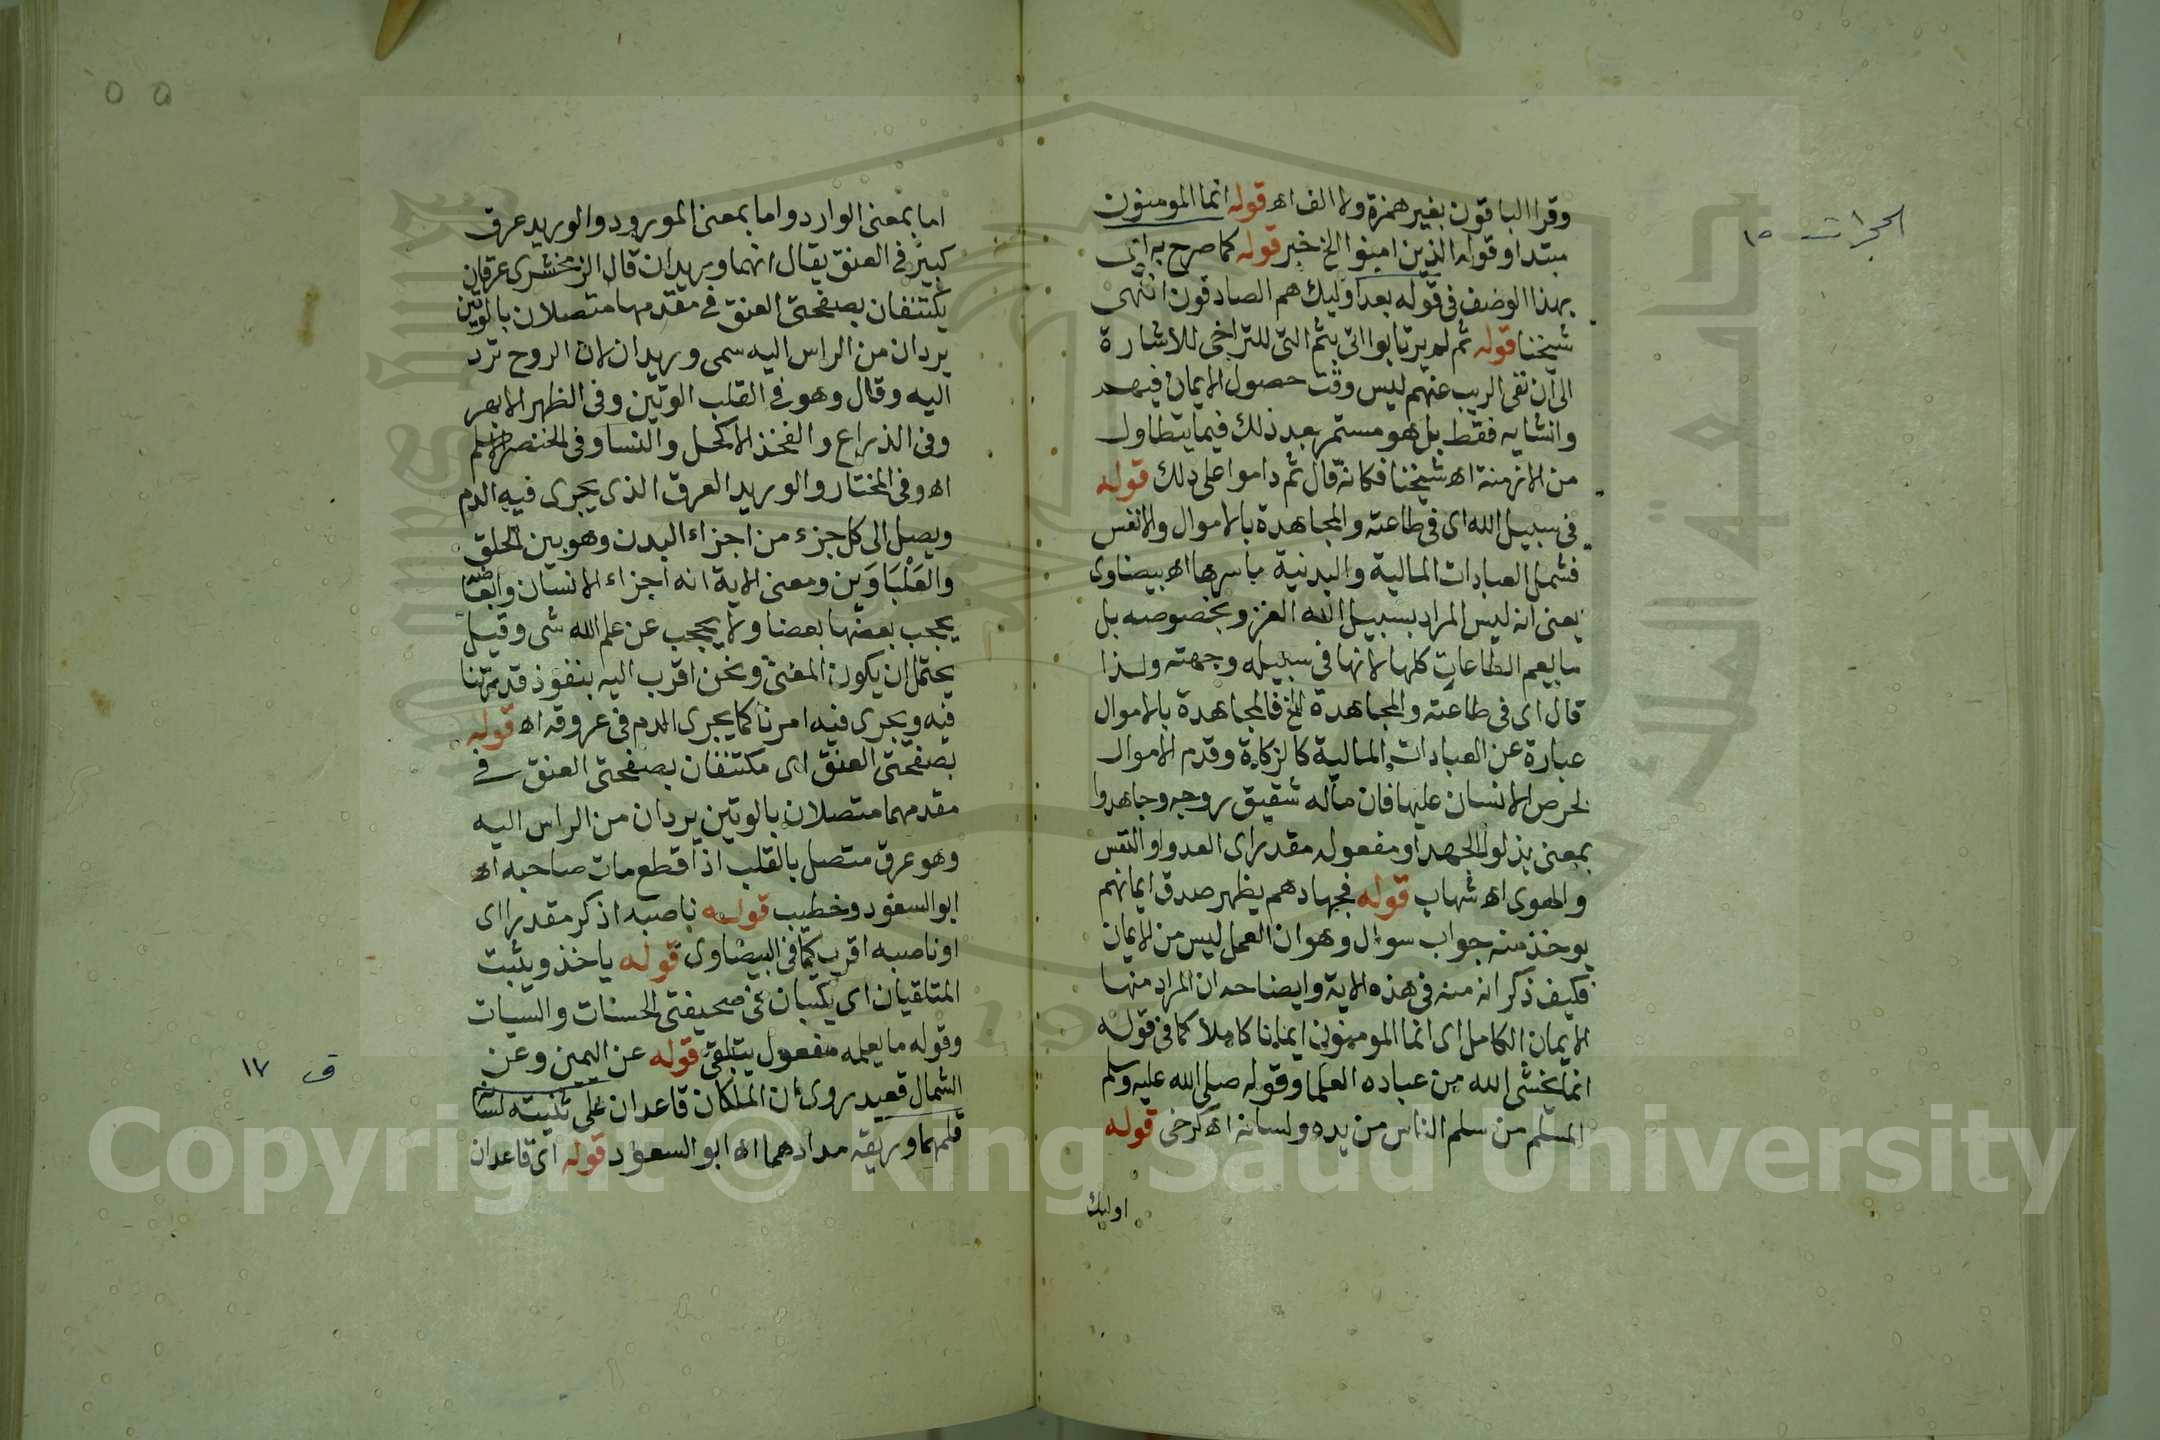 الحجرات ١٥
وقرا الباقون بغير همزة ولا الف اه قوله انما المومنون
مبتدا وقوله الذين امنوا الخ خبر قوله كما صرح به اي
بهذا الوصف في قوله بعد اوليك هم الصادقون انتهى
شيخنا قوله ثم لم يرتابوا اتى بثم التي للتراخي للاشارة
الى ان نفى الريب عنهم ليس وقت حصول الايمان فيهم
وانشايه فقط بل هو مستمر بعد ذلك فيما يتطاول
من الازمنة اه شيخنا فكانه قال ثم داموا على ذلك قوله
في سبيل الله اى في طاعته والمجاهدة بالاموال والانفس
فشمل العبادات المالية والبدنية باسرها اه بيضاوى
يعنى انه ليس المراد بسبيل الله الغزو بخصوصه بل
ما يعم الطاعات كلها لانها في سبيله وجهته ولذا
قال اى في طاعته والمجاهدة الخ فالمجاهدة بالاموال
عبارة عن العبادات المالية كالزكاة وقدم الاموال
لحرص الانسان عليها فان ماله شقيق روحه وجاهدوا
بمعنى بذلوا الجهد او مفعوله مقدر اى العدو او النفس
والهوى اه شهاب قوله فجهادهم يظهر صدق ايمانهم
يوخذ منه جواب سوال وهو ان العمل ليس من الايمان
فكيف ذكر انه منه في هذه الاية وايضاحه ان المراد منها
الايمان الكامل اى انما المومنون ايمانا كاملا كما في قوله
انما يخشى الله من عباده العلما وقوله صلى الله عليه وسلم
المسلم من سلم الناس من يده ولسانه اه كرخي قوله
اوليك
اما بمعنى الوارد واما بمعنى المورود والوريد عرق
كبير في العنق يقال انهما وريدان قال الزمخشرى عرقان
يكتنفان بصفحتى العنق في مقدمها متصلان بالوتين
يردان من الراس اليه سمى وريدا لان الروح ترد
اليه وقال وهو في القلب الوتين وفي الظهر الابهر
وفي الذراع والفخذ الاكحل والنسا وفي الخنصر الاسلم
اه وفي المختار والوريد العرق الذى يجرى فيه الدم
ويصل الى كل جزء من اجزاء البدن وهو بين الحلق
والعَلْبَاوَين ومعنى الاية انه اجزاء الانسان وابعاضه
يحجب بعضها بعضا ولا يحجب عن علم الله شى وقيل
يحتمل ان يكون المعنى ونحن اقرب اليه بنفوذ قدرتنا
فيه ويجرى فيه امرنا كما يجرى الدم في عروقه اه قوله
بصفحتى العنق اى مكتنفان بصفحتى العنق في
مقدمهما متصلان بالوتين يردان من الراس اليه
وهو عرق متصل بالقلب اذا قطع مات صاحبه اه
ابو السعود وخطيب قوله ناصبه اذكر مقدرا اى
او ناصبه اقرب كما في البيضاوى قوله ياخذ ويثبت
المتلقيان اى يكتبان في صحيفتى الحسنات والسيات
وقوله ما يعمله مفعول يتلقى قوله عن اليمين وعن
ق ١٧
الشمال قعيد روى ان الملكان قاعدان على ثنيته لسانه
قلمهما وريقه مدادهما اه ابو السعود قوله اى قاعدان
Copyright © King Saud University